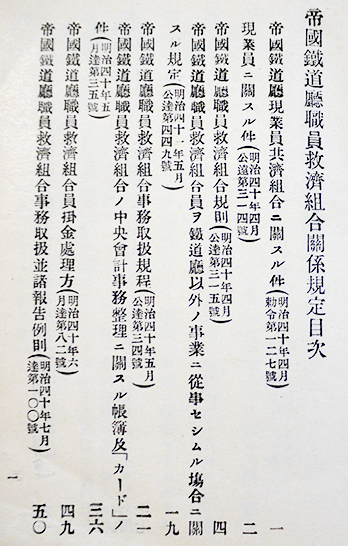 帝國鐵道廳職員救濟組合關係規定目次
帝國鐵道廳現業員共濟組合ニ關スル件(明治四十年四月勅令第一二七號) 一
現業員ニ關スル件(明治四十年四月公達第三一四號) 二
帝國鐵道廳職員救濟組合規則(明治四十年四月公達第三一五號) 四
帝國鐵道廳職員救濟組合員ヲ鐵道廳以外ノ事業ニ從事セシムル塲合ニ關
スル規定(明治四十一年五月公達第四四九號) 一九
帝國鐵道廳職員救濟組合事務取扱規程(明治四十年五月公達第三四號) 二一
帝國鐵道廳職員救濟組合ノ中央會計事務整理ニ關スル帳簿及「カード」ノ
件(明治四十年五月達第三五號) 三六
帝國鐵道廳職員救濟組合員掛金處理方(明治四十年六月達第八二號) 四九
帝國鐵道廳職員救濟組合事務取扱並諸報告例則(明治四十年七月達第一〇〇號) 五〇
一